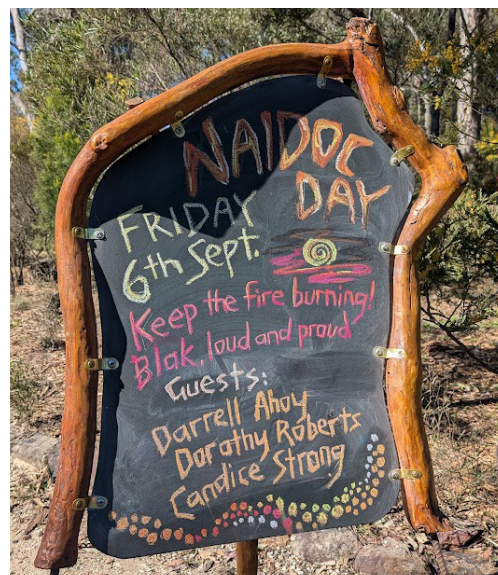 NAIDOC
DAY
FRIDAY
6th Sept.
Keep the fire burning!
Blak, loud and proud
Guests:
Darrell Ahoy
Dorothy Roberts
Candice Strong